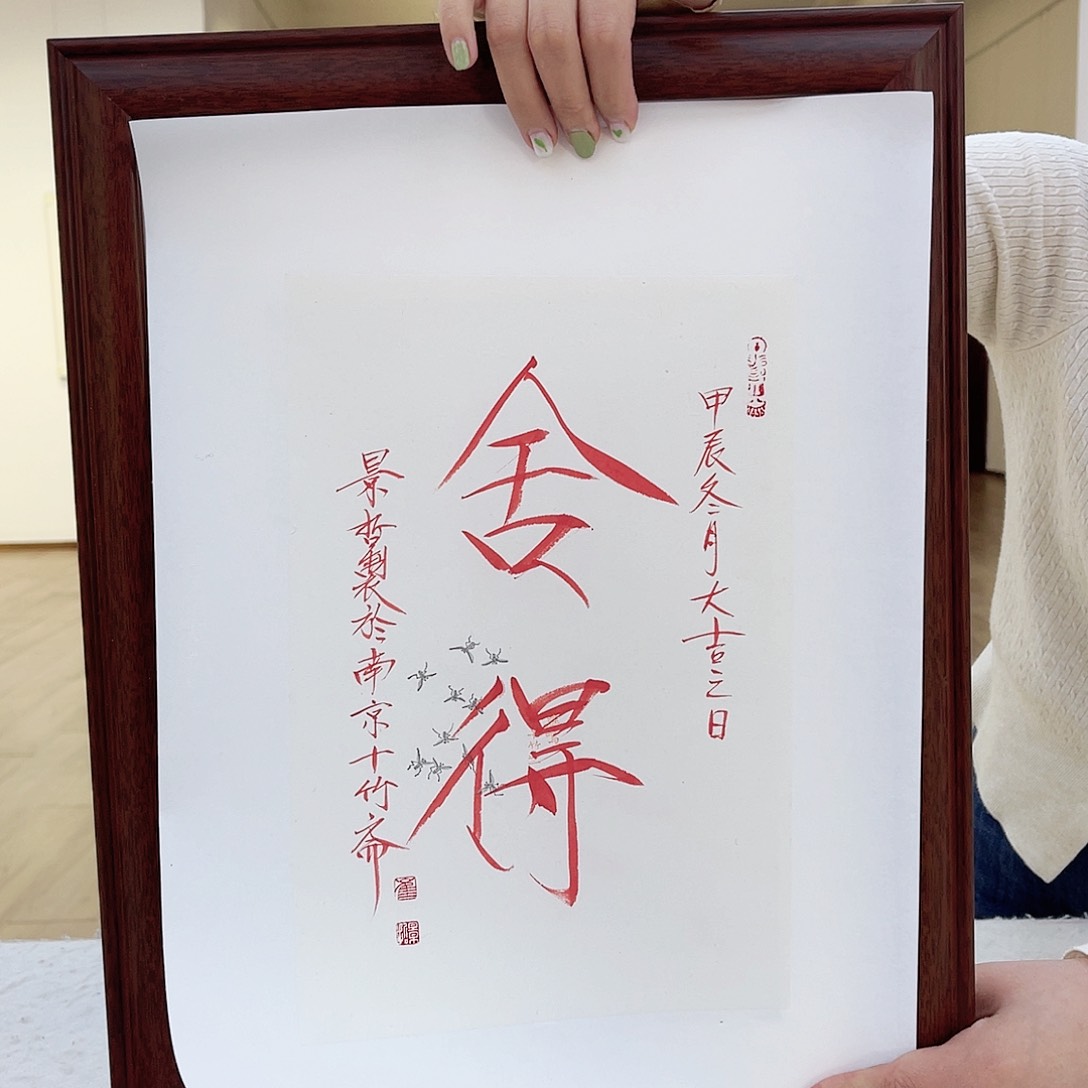 甲辰冬月大吉之日
舍得
景哲製於南京十竹斋